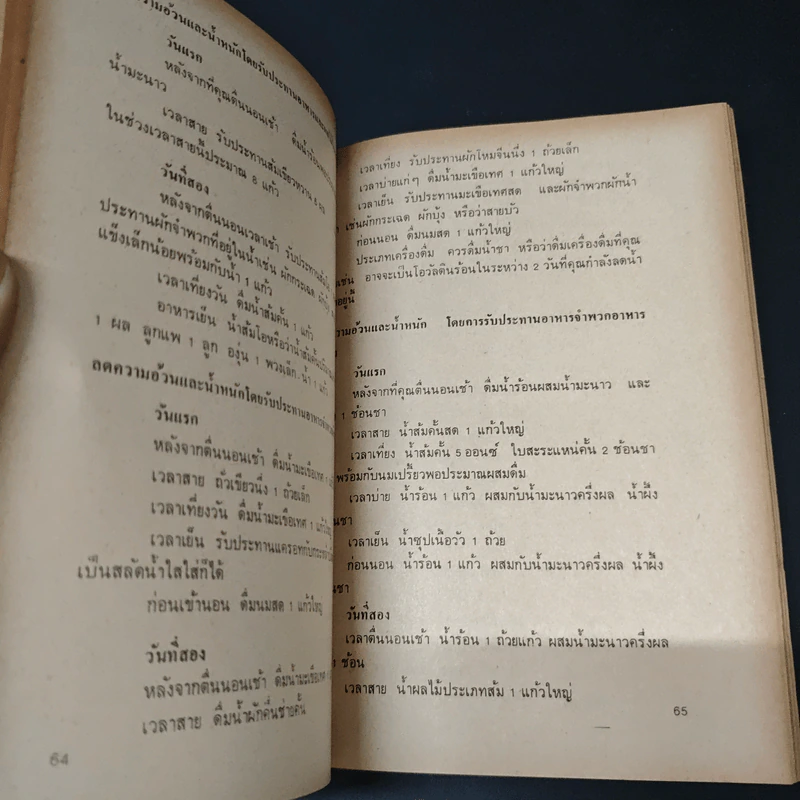 ความอ้วนและน้ำหนักโดยรับประทานอาหาร
วันแรก
หลังจากที่คุณตื่นนอนเช้า ดื่มน้ำร้อน
น้ำมะนาว
เวลาสาย รับประทานส้มเขียวหวาน 8 ผล
ในช่วงเวลาสายนี้ประมาณ 8 แก้ว
วันที่สอง
หลังจากตื่นนอนเวลาเช้า รับประทาน
ประทานผักจำพวกที่อยู่ในน้ำเช่น ผักกระเฉด
แข็งเล็กน้อยพร้อมกับน้ำ 1 แก้ว
เวลาเที่ยงวัน ดื่มน้ำส้มคั้น 1 แก้ว
อาหารเย็น น้ำส้มโอหรือว่าน้ำส้มคั้น
1 ผล ลูกแพ 1 ลูก องุ่น 1 พวงเล็ก-น้ำ 1 แก้ว
ลดความอ้วนและน้ำหนักโดยรับประทานอาหาร
วันแรก
หลังจากตื่นนอนเช้า ดื่มน้ำมะเขือเทศ 1
เวลาสาย ถั่วเขียวนึ่ง 1 ถ้วยเล็ก
เวลาเที่ยงวัน ดื่มน้ำมะเขือเทศ 1 แก้วใหญ่
เวลาเย็น รับประทานแครอท
เป็นสลัดน้ำใสใส่ก็ได้
ก่อนเข้านอน ดื่มนมสด 1 แก้วใหญ่
วันที่สอง
หลังจากตื่นนอนเช้า ดื่มน้ำมะเขือเทศ
เวลาสาย ดื่มน้ำผักคื่นช่ายคั้น
64
เวลาเที่ยง รับประทานผักโหมจีนนึ่ง 1 ถ้วยเล็ก
เวลาบ่ายแก่ๆ ดื่มน้ำมะเขือเทศ 1 แก้วใหญ่
เวลาเย็น รับประทานมะเขือเทศสด และผักจำพวกผักน้ำ
เช่นผักกระเฉด ผักบุ้ง หรือว่าสายบัว
ก่อนนอน ดื่มนมสด 1 แก้วใหญ่
ประเภทเครื่องดื่ม ควรดื่มน้ำชา หรือว่าดื่มเครื่องดื่มที่คุณ
เช่น อาจจะเป็นโอวัลตินร้อนในระหว่าง 2 วันที่คุณกำลังลดน้ำ
อยู่นี้
ความอ้วนและน้ำหนัก โดยการรับประทานอาหารจำพวกอาหาร
วันแรก
หลังจากที่คุณตื่นนอนเช้า ดื่มน้ำร้อนผสมน้ำมะนาว และ
1 ช้อนชา
เวลาสาย น้ำส้มคั้นสด 1 แก้วใหญ่
เวลาเที่ยง น้ำส้มคั้น 5 ออนซ์ ใบสะระแหน่คั้น 2 ช้อนชา
พร้อมกับนมเปรี้ยวพอประมาณผสมดื่ม
เวลาบ่าย น้ำร้อน 1 แก้ว ผสมกับน้ำมะนาวครึ่งผล น้ำผึ้ง
ชา
เวลาเย็น น้ำซุปเนื้อวัว 1 ถ้วย
ก่อนนอน น้ำร้อน 1 แก้ว ผสมกับน้ำมะนาวครึ่งผล น้ำผึ้ง
ชา
วันที่สอง
เวลาตื่นนอนเช้า น้ำร้อน 1 ถ้วยแก้ว ผสมน้ำมะนาวครึ่งผล
ช้อน
เวลาสาย น้ำผลไม้ประเภทส้ม 1 แก้วใหญ่
65